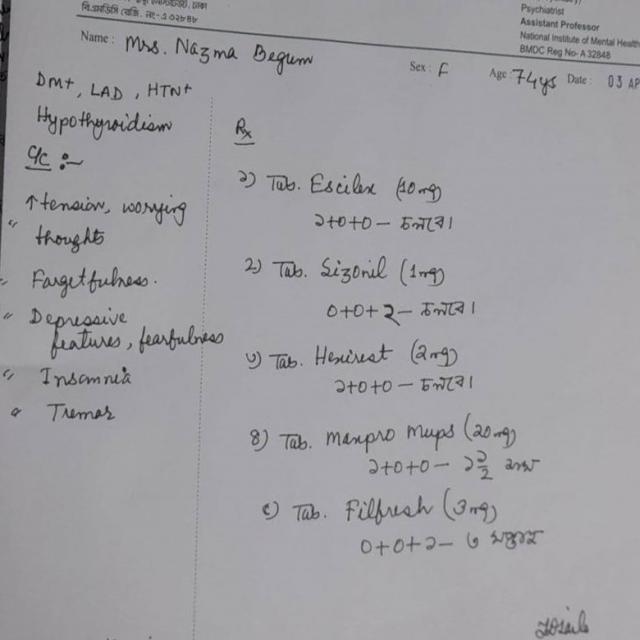 বি.এমডিসি রেজি. নং-এ ৩২৮৪৮
Psychiatrist
Assistant Professor
National Institute of Mental Health
BMDC Reg No- A 32848
Name : Mrs. Nazma Begum
Sex : F
Age 74ys
Date : 03 AP
DM+, LAD, HTN+
Hypothyroidism
C/C :-
↑tension, worrying
thoughts
Fargetfulness.
Depressive
features, fearfulness
Insomnia
Tremor
Rx
১) Tab. Escilex (10mg)
১+0+0 – চলবে।
২) Tab. Sizonil (1mg)
0+0+১ – চলবে।
৩) Tab. Hexirest (2mg)
১+0+0 – চলবে।
৪) Tab. Maxpro Mups (20mg)
১+0+0 – ১ ১/২ মাস
৫) Tab. Filfresh (3mg)
0+0+১ – ৩ সপ্তাহ